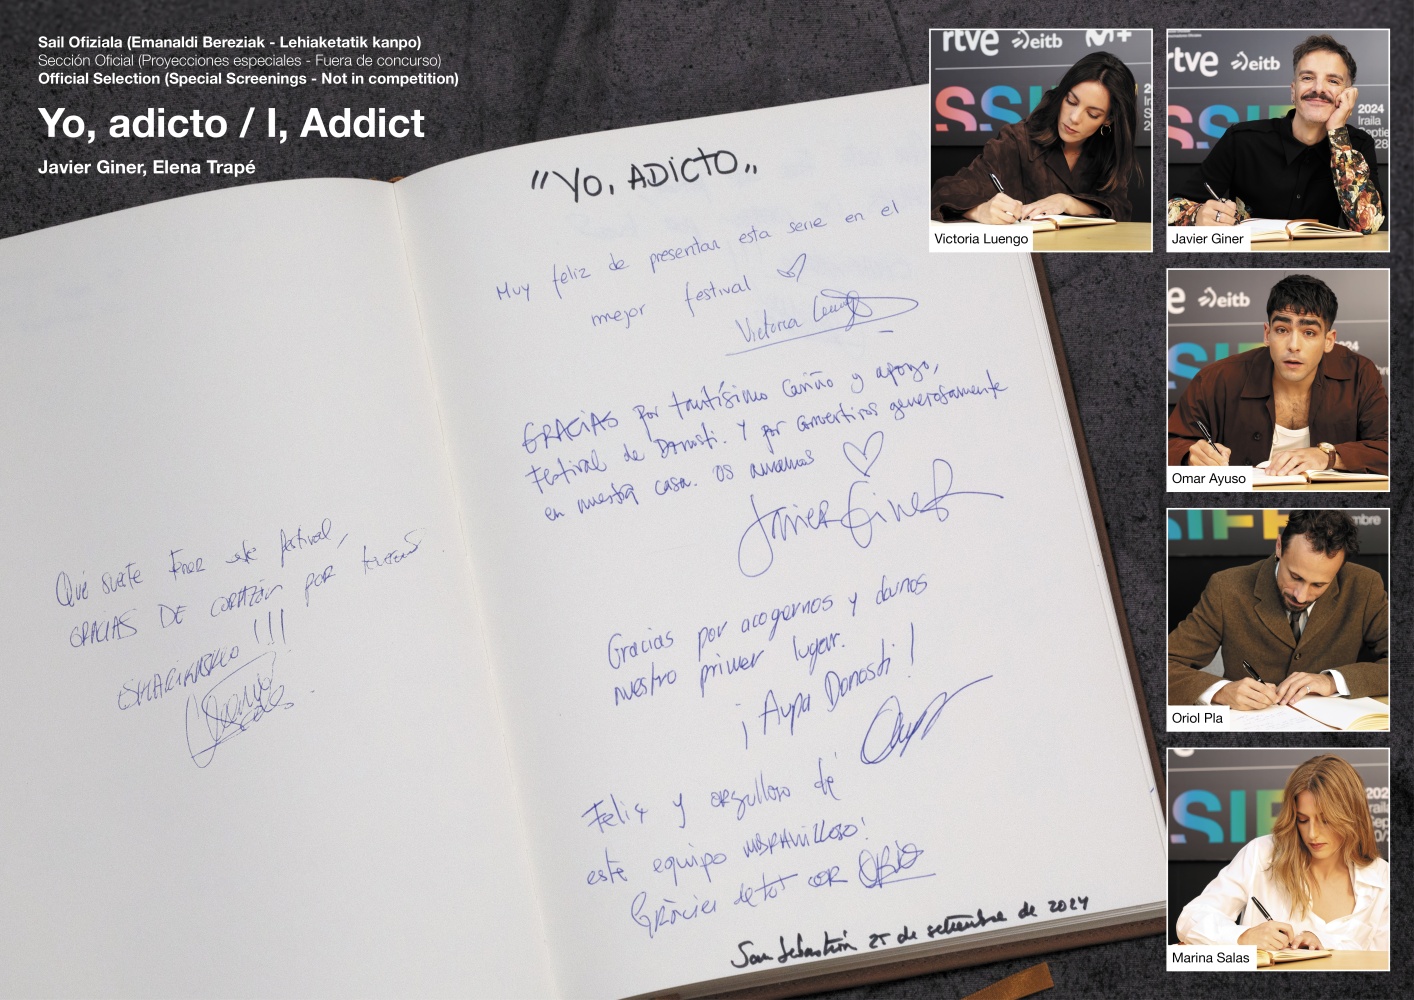 Sail Ofiziala (Emanaldi Bereziak - Lehiaketatik kanpo)
Sección Oficial (Proyecciones especiales - Fuera de concurso)
Official Selection (Special Screenings - Not in competition)
Yo, adicto / I, Addict
Javier Giner, Elena Trapé
Qué suerte tener este festival,
GRACIAS DE corazón por
ESKARIKASKO !!!
"Yo, ADICTO"
Muy feliz de presentar esta serie en el
mejor festival
Victoria Luengo
GRACIAS por tantísimo cariño y apoyo,
Festival de Donosti. Y por convertiros generosamente
en nuestra casa. Os amamos
Javier Giner
Gracias por acogernos y darnos
nuestro primer lugar.
¡Aupa Donosti!
Feliz y orgulloso de
este equipo MARAVILLOSO!
Gràcies de tot cor ORIOL
San Sebastián 25 de setiembre de 2024
rtve eitb M+
SSI
Victoria Luengo
rtve eitb
SSIF
2024
Iraila
Septie
28
Javier Giner
e eitb
SIF
Omar Ayuso
SIFF
mbre
Oriol Pla
rtve
SIF
202
Iraila
Sep
Marina Salas